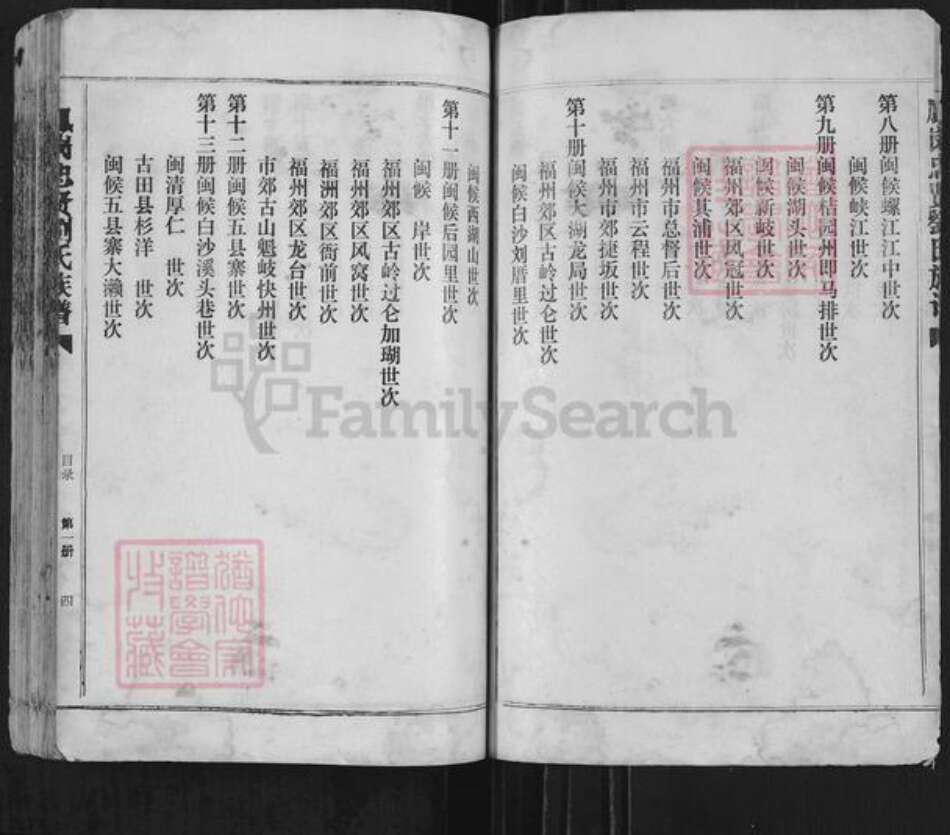 第八册闽候螺江江中世次
闽候峡江世次
第九册闽候桔园州即马排世次
闽候湖头世次
闽候新岐世次
福州郊区凤冠世次
闽候其浦世次
福州市总督后世次
福州市云程世次
福州市郊捷坂世次
第十册闽候大湖龙局世次
福州郊区古岭过仑世次
闽候白沙刘厝里世次
闽候西湖山世次
第十一册闽候后园里世次
闽候　岸世次
福州郊区古岭过仑加瑚世次
福州郊区凤窝世次
福洲郊区衙前世次
福州郊区龙台世次
市郊古山魁岐快州世次
第十二册闽候五县寨世次
第十三册闽候白沙溪头巷世次
闽清厚仁　世次
古田县杉洋　世次
闽候五县寨大濑世次
忠贤刘氏族谱
目录
第一册
四
譜學會
收藏
FamilySearch